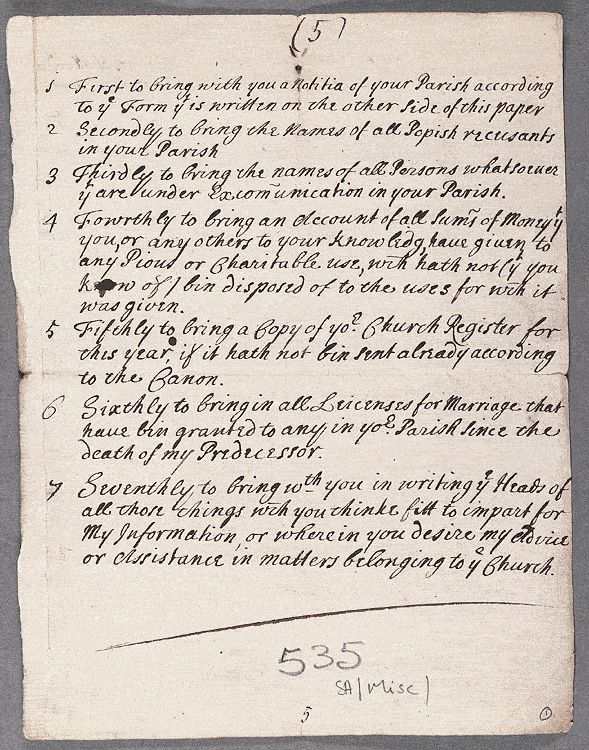 (5)
1 First to bring with you a Notitia of your Parish according
to yᵉ Form yᵗ is written on the other side of this paper
2 Secondly to bring the Names of all Popish recusants
in your Parish
3 Thirdly to bring the names of all Persons whatsoever
yᵗ are under Excom̄unication in your Parish.
4 Fowrthly to bring an Account of all Sum̄s of Money yᵗ
you, or any others to your knowledg, have given to
any Pious or Charitable use, wch hath not (yᵗ you
know of) bin disposed of to the uses for wch it
was given.
5 Fifthly to bring a Copy of yoʳ Church Register for
this year, if it hath not bin sent already according
to the Canon.
6 Sixthly to bring in all Leicenses for Marriage that
have bin granted to any in yoʳ Parish since the
death of my Predecessor.
7 Seventhly to bring wth you in writing yᵉ Heads of
all those things wch you thinke fitt to impart for
My Information, or wherein you desire my Advice
or Assistance in matters belonging to yᵉ Church.
535
SA/Misc/
5
1